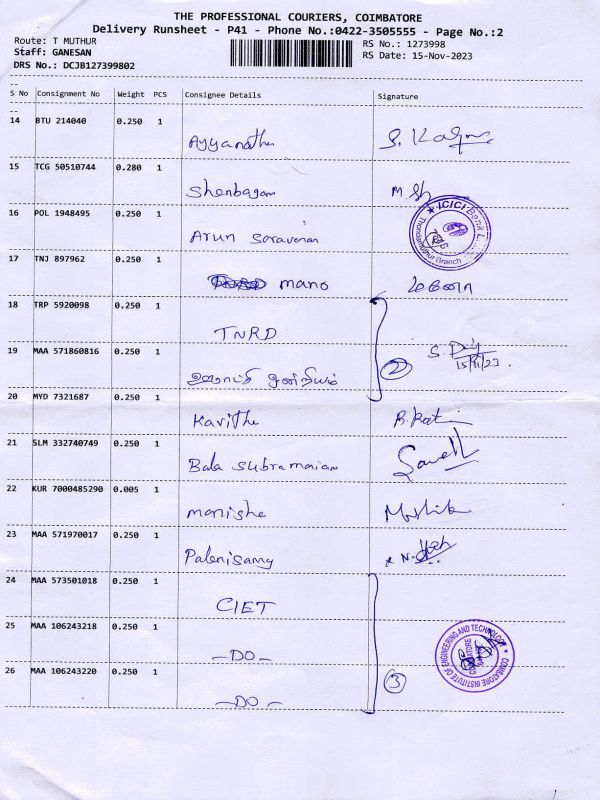 THE PROFESSIONAL COURIERS, COIMBATORE
Delivery Runsheet - P41 - Phone No.:0422-3505555 - Page No.:2
Route: T MUTHUR
RS No.: 1273998
Staff: GANESAN
RS Date: 15-Nov-2023
DRS No.: DCJB127399802
S No Consignment No Weight PCS Consignee Details Signature
14 BTU 214040 0.250 1
Ayyanathu
15 TCG 50510744 0.280 1
Shenbagam M
16 POL 1948495 0.250 1
Arun Saravanan
ICICI Bank
Branch
17 TNJ 897962 0.250 1
mano
18 TRP 5920098 0.250 1
TNRD
19 MAA 571860816 0.250 1
2
15/11/23.
ஊராட்சி ஒன்றியம்
20 MYD 7321687 0.250 1
Kavitha
21 SLM 332740749 0.250 1
Bala Subramaiam
22 KUR 7000485290 0.005 1
manisha
23 MAA 571970017 0.250 1
Palanisamy
24 MAA 573501018 0.250 1
CIET
25 MAA 106243218 0.250 1
-DO-
COIMBATORE INSTITUTE OF ENGINEERING AND TECHNOLOGY
COIMBATORE
26 MAA 106243220 0.250 1
3
-DO-